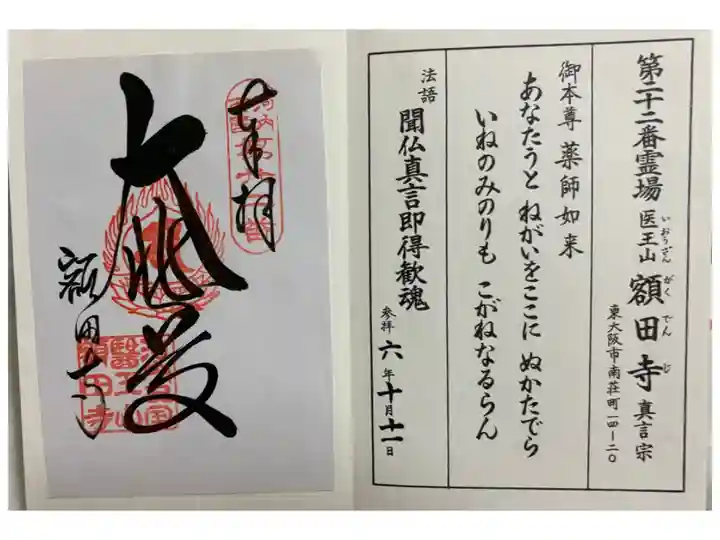 第二十二番霊場 医王山 額田寺 真言宗
いおうざん
がくでんじ
東大阪市南荘町一四ー二〇
御本尊 薬師如来
あなたうと ねがいをここに ぬかたでら
いねのみのりも こがねなるらん
法語 聞仏真言即得歓魂
参拝 六年十月十一日
奉拝
額田寺